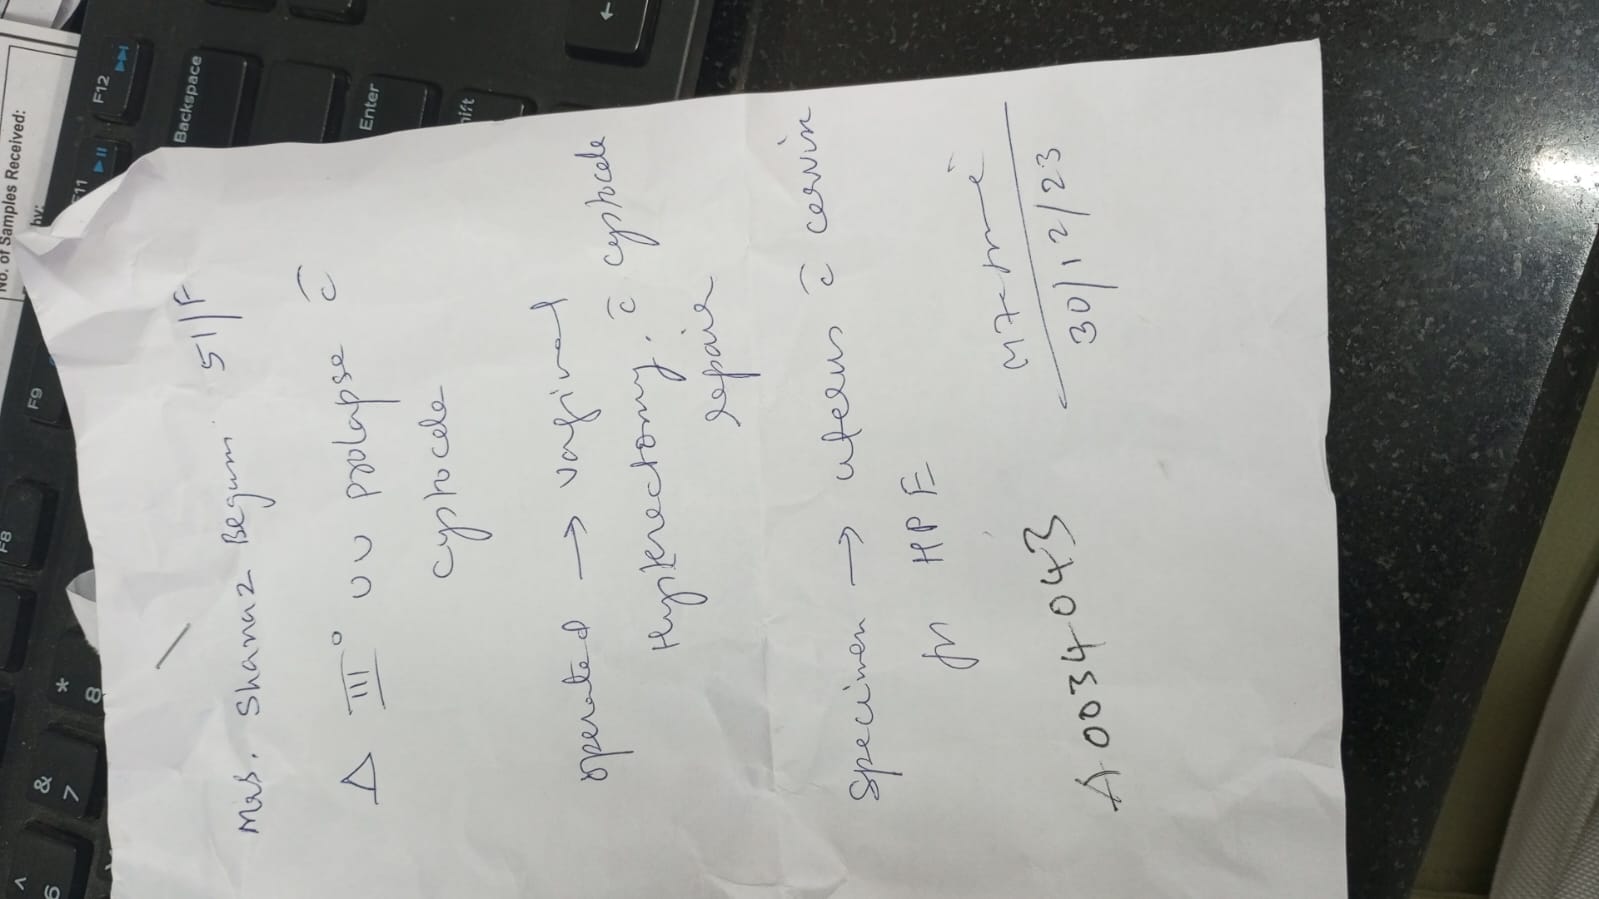 Mrs. Shanaz Begum. 51/F
Δ III° UV prolapse c̄
cystocele
operated → vaginal
Hysterectomy. c̄ cystocele
repair
Specimen → uterus c̄ cervix
for HPE
30/12/23
A0034043
No. of Samples Received:
by:
F12
F11
F9
F8
Backspace
Enter
hift
*
8
&
7
^
6